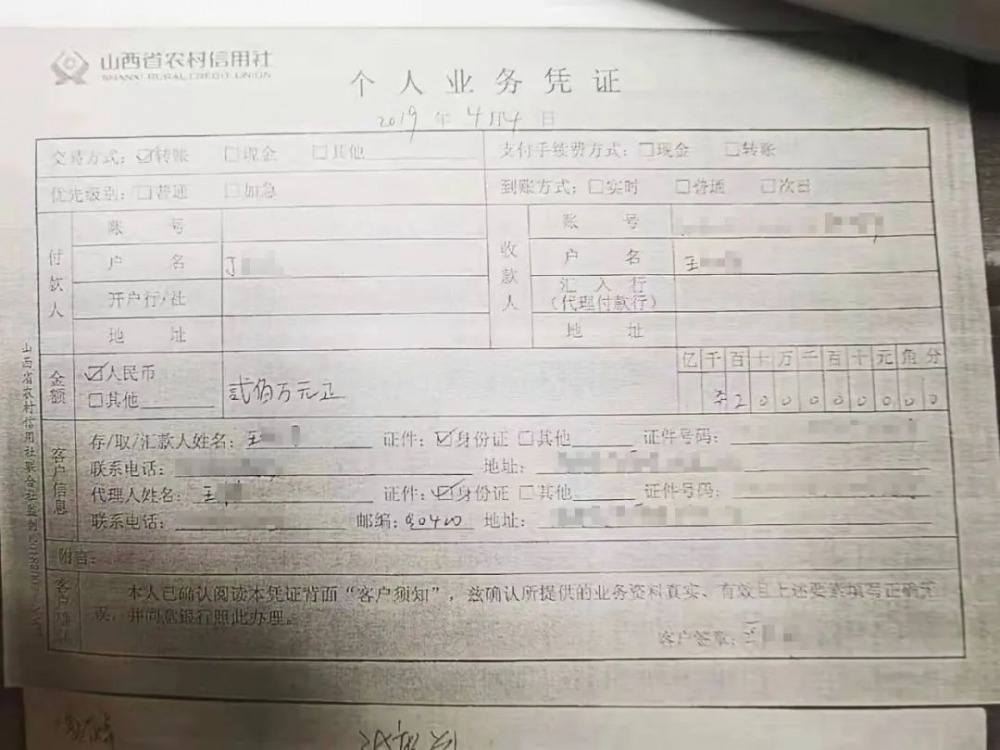 山西省农村信用社
SHANXI RURAL CREDIT UNION
个人业务凭证
2019年4月4日
交易方式：☑转账 □现金 □其他
支付手续费方式：□现金 □转账
优先级别：□普通 □加急
到账方式：□实时 □普通 □次日
付款人
账号
户名 丁
开户行/社
地址
收款人
账号
户名 王
汇入行
（代理付款行）
地址
金额
☑人民币
□其他
贰佰万元正
亿千百十万千百十元角分
200000000
客户信息
存/取/汇款人姓名：王 证件：☑身份证 □其他 证件号码：
联系电话： 地址：
代理人姓名：王 证件：☑身份证 □其他 证件号码：
联系电话： 邮编： 地址：
附言：
客户确认
本人已确认阅读本凭证背面“客户须知”，兹确认所提供的业务资料真实、有效且上述要素填写正确无
误，并同意银行照此办理。
客户签章：
山西省农村信用社联合社监制